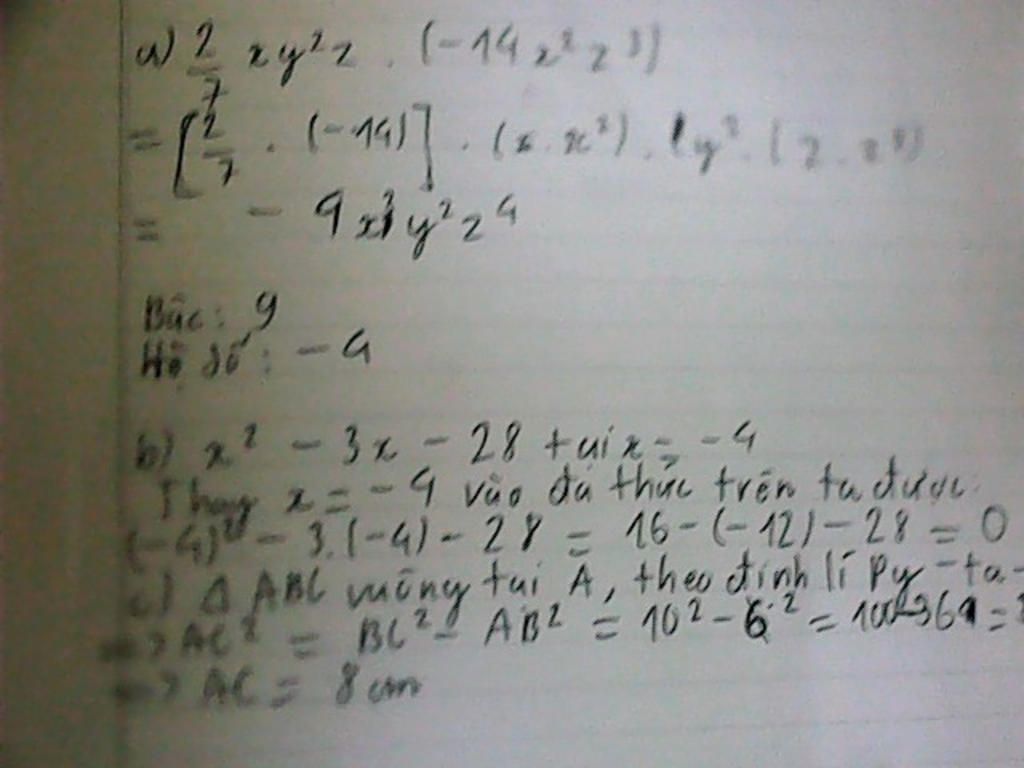 a) 2/7 xy²z . (-14x²z³)
= [2/7 . (-14)] . (x.x²) . y² . (z.z³)
= - 4x³y²z⁴
Bậc: 9
Hệ số: - 4
b) x² - 3x - 28 tại x = -4
Thay x = -4 vào đa thức trên ta được:
(-4)² - 3.(-4) - 28 = 16 - (-12) - 28 = 0
c) Δ ABC vuông tại A, theo định lí Py-ta-
=> AC² = BC² - AB² = 10² - 6² = 100 - 36 =
=> AC = 8 cm